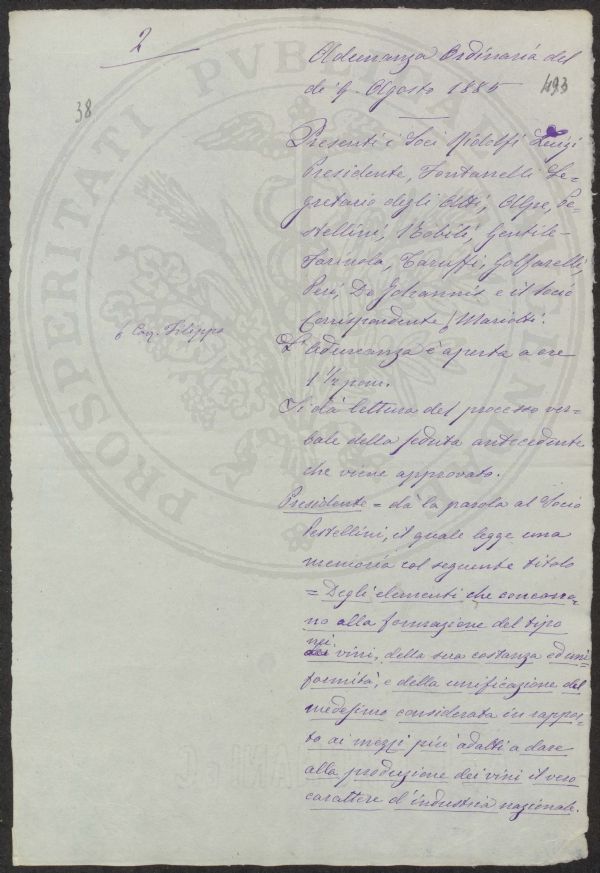 2
Adunanza Ordinaria del
dì 9. Agosto 1885
493
38
Presenti i Soci Ridolfi Luigi
Presidente, Fontanelli Se-
gretario degli Atti, Alpe, Pe-
stellini, Nobili, Gentile-
Farinola, Taruffi, Golfarelli,
Peri, De Johannis e il Socio
Corrispondente Mariotti.
Cav. Filippo
L'Adunanza è aperta a ore
1 1/2 pom.
Si dà lettura del processo ver-
bale della seduta antecedente
che viene approvato.
Presidente = dà la parola al Socio
Pestellini, il quale legge una
memoria col seguente titolo
= Degli elementi che concorro-
no alla formazione del tipo
nei
dei vini, della sua costanza ed uni
formità, e della unificazione del
medesimo considerata in rappor-
to ai mezzi più adatti a dare
alla produzione dei vini il vero
carattere d'industria nazionale.
PROSPERITATI PUBLICAE AUGENDAE